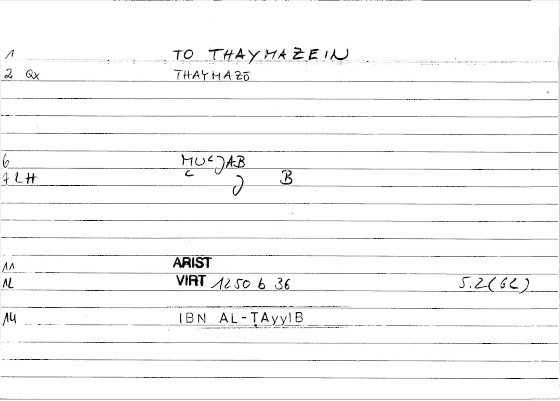 1 TO THAYMAZEIN
2 Qx THAYMAZŌ
6 MUʿJAB
7 LH ʿ J B
11 ARIST
12 VIRT 1250 b 36 5.2(6L)
14 IBN AL-ṬAyyIB